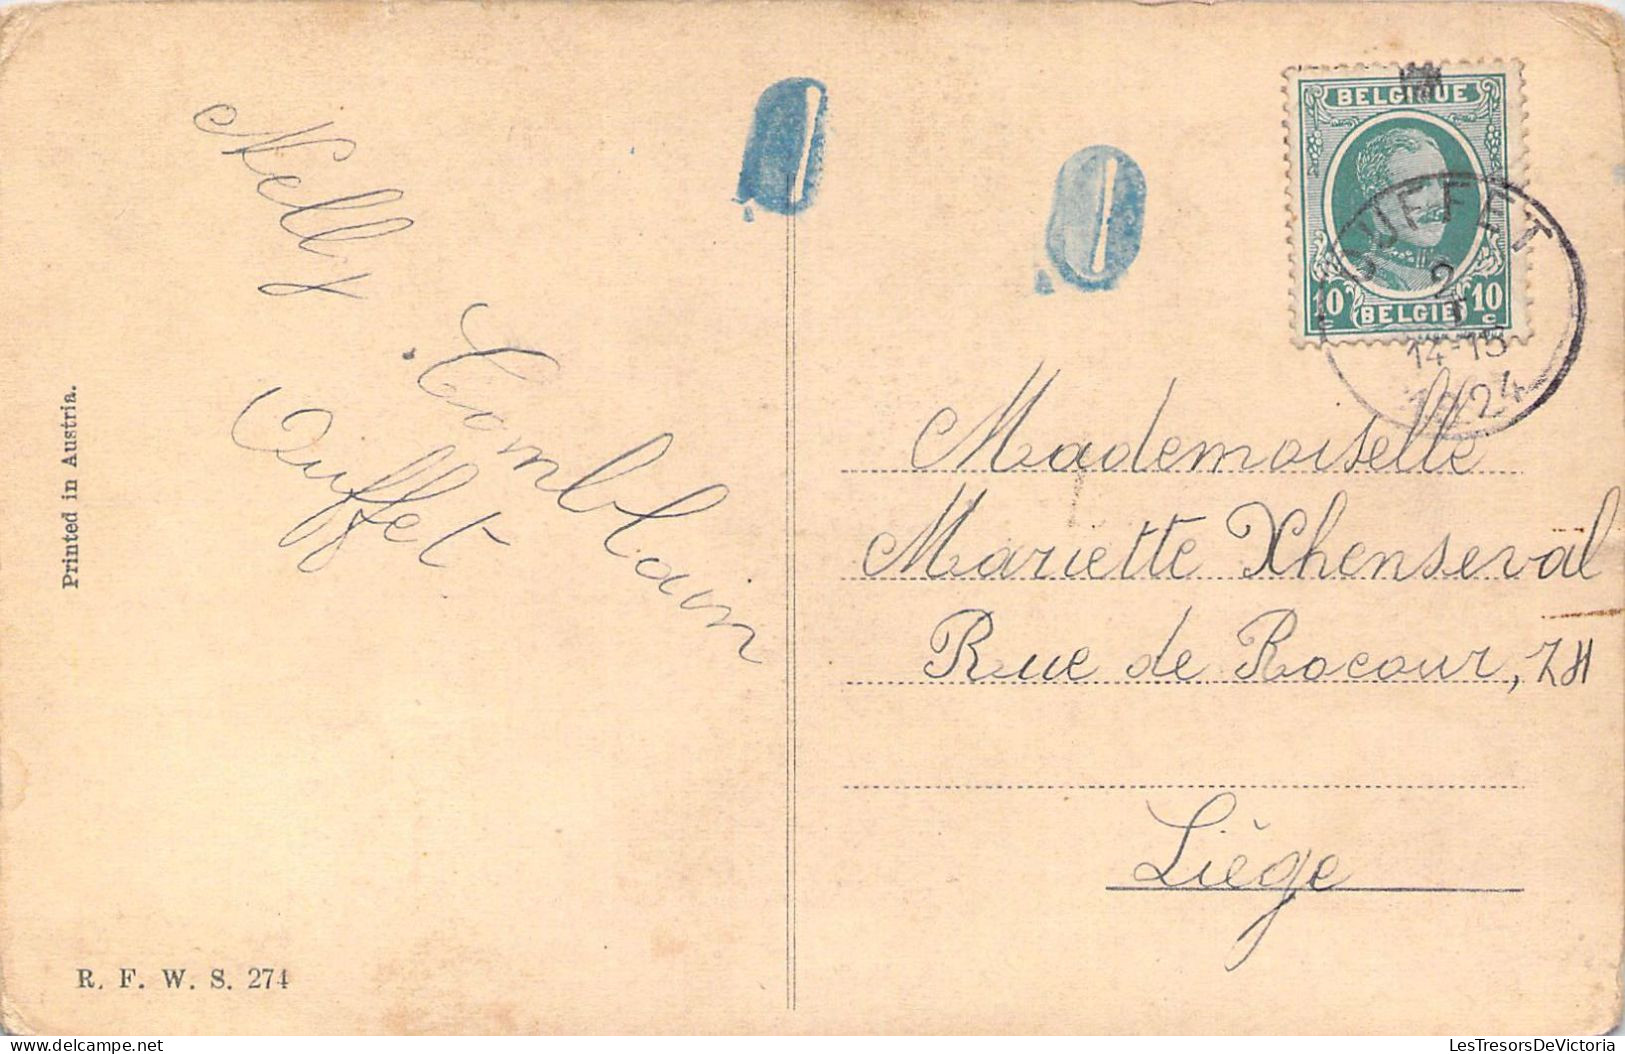 Nelly Comblain
Ouffet
Printed in Austria.
R. F. W. S. 274
BELGIQUE
10 c BELGIË 10 c
OUFFET
2
14-15
1924
Mademoiselle
Mariette Xhenseval
Rue de Rocour,
Liège
LesTresorsDeVictoria
delcampe.net